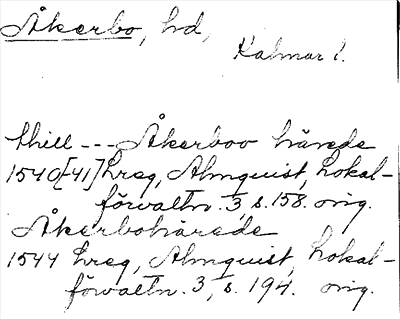 Åkerbo, hd,
Kalmar l.
thill --- Åkerboo härede
1540[-41] hreg, Almquist, Lokal-
förvaltn. 3, s. 158. orig.
Åkerbohärede
1544 hreg, Almquist, Lokal-
förvaltn. 3, s. 194. orig.